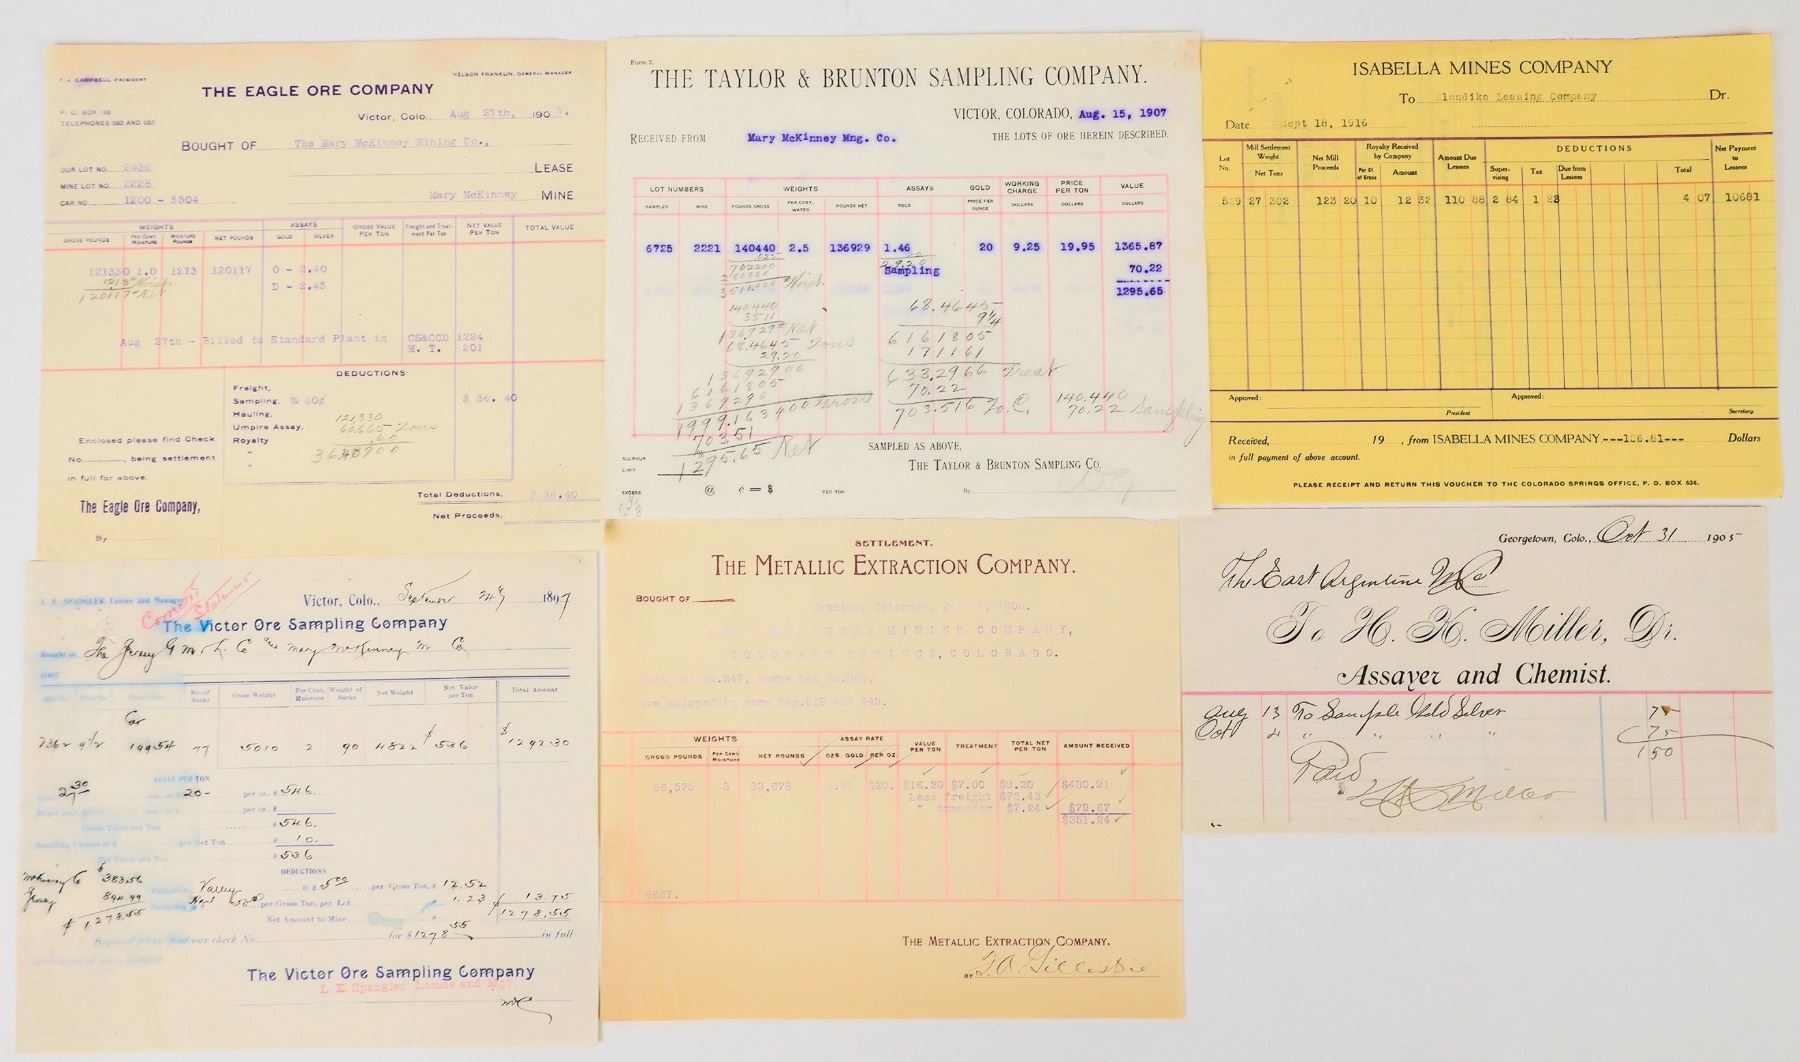 F. J. CAMPBELL, PRESIDENT
NELSON FRANKLIN, GENERAL MANAGER
THE EAGLE ORE COMPANY
P. O. BOX 188
TELEPHONES 582 AND 583
Victor, Colo., Aug 27th, 1907.
BOUGHT OF The Mary McKinney Mining Co.,
OUR LOT NO. 2436
LEASE
MINE LOT NO. 2228
CAR NO. 1200 - 5504
Mary McKinney MINE
WEIGHTS ASSAYS GROSS VALUE PER TON Freight and Treatment Per Ton NET VALUE PER TON TOTAL VALUE
GROSS POUNDS PER CENT. MOISTURE MOISTURE POUNDS NET POUNDS GOLD SILVER
121330 1.0 1213 120117 O - 2.40
1213 Moist
D - 2.45
120117 Net
Aug 27th - Billed to Standard Plant in CS&CCD 1224
M. T. 201
DEDUCTIONS
Freight,
Sampling, @ 60¢ $ 36. 40
Hauling, 121,330
Umpire Assay, 60,665 Tons
Royalty .60
Enclosed please find Check
No. , being settlement
in full for above.
Total Deductions, $ 36.40
The Eagle Ore Company,
Net Proceeds,
By
Form 2.
THE TAYLOR & BRUNTON SAMPLING COMPANY.
VICTOR, COLORADO, Aug. 15, 1907
RECEIVED FROM Mary McKinney Mng. Co. THE LOTS OF ORE HEREIN DESCRIBED.
LOT NUMBERS WEIGHTS ASSAYS GOLD WORKING CHARGE PRICE PER TON VALUE
SAMPLER MINE POUNDS GROSS PER CENT. WATER POUNDS NET GOLD PRICE PER OUNCE DOLLARS DOLLARS DOLLARS
6725 2221 140440 2.5 136929 1.46 20 9.25 19.95 1365.87
.025
702200 29.20
Sampling 70.22
280880
3511.000 Moist.
1295.65
140440
3511
136929 Net
68.4645 Tons
29.20
13692900
6161805
1369290
1999.163400 Gross
703.51
1295.65 Net
68.4645
9¼
6161805
171161
633.2966 Treat
70.22
703.516 To. C.
140.440
70.22 Sampling
SAMPLED AS ABOVE,
SULPHUR
LIMIT
THE TAYLOR & BRUNTON SAMPLING CO.
EXCESS @ ¢ = $ PER TON
By
ISABELLA MINES COMPANY
To Klondike Leasing Company Dr.
Date Sept 18, 1916
Lot No. Mill Settlement Weight Net Tons Net Mill Proceeds Royalty Received by Company Per Ct. of Gross Amount Amount Due Lessees DEDUCTIONS Supervising Tax Due from Lessees Total Net Payment to Lessees
529 27 302 123 20 10 12 32 110 88 2 84 1 23 4 07 10681
Approved: President
Approved: Secretary
Received, 19 , from ISABELLA MINES COMPANY ---106.81--- Dollars
in full payment of above account.
PLEASE RECEIPT AND RETURN THIS VOUCHER TO THE COLORADO SPRINGS OFFICE, P. O. BOX 636.
L. E. SPANGLER Lessee and Manager
Correct Statement
Victor, Colo., September 24 1897
The Victor Ore Sampling Company
Bought of The Jersey G M & L Co Mary McKinney M Co
ORE
No. of Sacks Gross Weight Per Cent. Moisture Weight of Sacks Net Weight Net Value per Ton Total Amount
Car
2362 9½ 19954 77 5010 2 90 4822 $536 $1292.30
ASSAY PER TON
2 730
20- per oz. $546
per oz. $
Gross Value per Ton $546.
Sampling Charge at $ per Net Ton $10.
Net Value per Ton $536
DEDUCTIONS
McKinney Co $383.56
Jersey 894.99
$1,278.55
@ $5.00 per Gross Ton, $12.52
per Gross Ton, per Lot 1.23 $13.75
Net Amount to Mine $1278.55
our check No. for $1278.55 in full
The Victor Ore Sampling Company
L. E. Spangler Lessee and Mgr
SETTLEMENT.
THE METALLIC EXTRACTION COMPANY.
BOUGHT OF
Cyanide, Colorado, July 6, 1900.
MCKINNEY MINING COMPANY,
COLORADO SPRINGS, COLORADO.
Mine Lot No.247, Works Lot No.965,
Ore shipped in cars Nos.519 and 549.
WEIGHTS ASSAY RATE VALUE PER TON TREATMENT TOTAL NET PER TON AMOUNT RECEIVED
GROSS POUNDS PER CENT. MOISTURE NET POUNDS OZS. GOLD PER OZ.
96,575 3 93,678 0.81 $20. $16.20 $7.00 $9.20 $430.91
Less freight $72.43
" transfer $7.24 $79.67
$351.24
8667.
THE METALLIC EXTRACTION COMPANY.
BY F. A. Gillespie
Georgetown, Colo., Oct 31 1905
The East Argentine M Co
To H. K. Miller, Dr.
Assayer and Chemist.
Aug 13 To Sample Gold Silver 75
Oct 4 " " " " 75
1 50
Paid
H K Miller